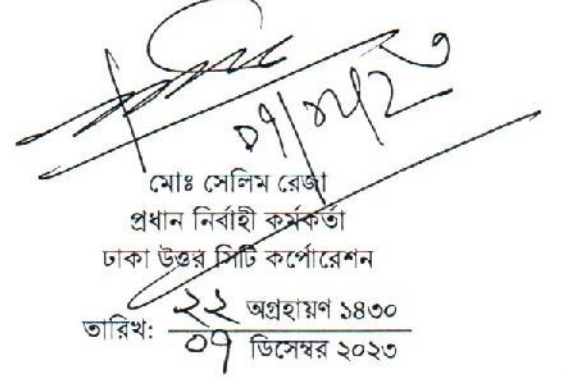 ০৭/১২/২৩
মোঃ সেলিম রেজা
প্রধান নির্বাহী কর্মকর্তা
ঢাকা উত্তর সিটি কর্পোরেশন
তারিখ: ২২ অগ্রহায়ণ ১৪৩০
০৭ ডিসেম্বর ২০২৩